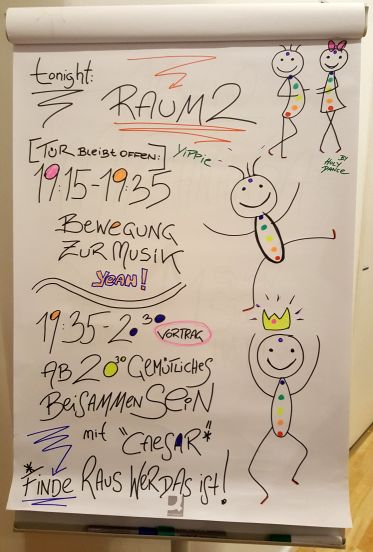 tonight:
RAUM 2
[TÜR BLEIBT OFFEN:]
19:15-19:35
Yippie
BY
HOLY
DANCE
BEWEGUNG
ZUR MUSIK
YEAH!
19:35-20:30
VORTRAG
AB 20:30 GEMÜTLICHES
BEISAMMENSEIN
mit "CAESAR"*
*FINDE RAUS WER DAS ist!